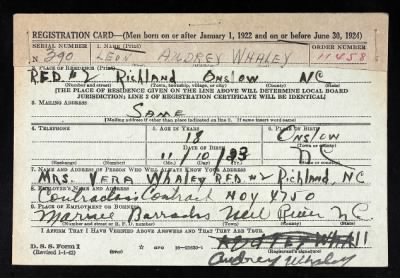 REGISTRATION CARD—(Men born on or after January 1, 1922 and on or before June 30, 1924)
SERIAL NUMBER 1. NAME (Print) ORDER NUMBER
N 390 LEON AUDREY WHALEY 11458
2. PLACE OF RESIDENCE (Print)
RFD #2 Richland Onslow NC
(Number and street) (Town, township, village, or city) (County) (State)
[THE PLACE OF RESIDENCE GIVEN ON THE LINE ABOVE WILL DETERMINE LOCAL BOARD
JURISDICTION; LINE 2 OF REGISTRATION CERTIFICATE WILL BE IDENTICAL]
3. MAILING ADDRESS
SAME
[Mailing address if other than place indicated on line 2. If same insert word same]
4. TELEPHONE 5. AGE IN YEARS 6. PLACE OF BIRTH
18 Onslow
DATE OF BIRTH (Town or county)
11 10 23 NC
(Exchange) (Number) (Mo.) (Day) (Yr.) (State or country)
7. NAME AND ADDRESS OF PERSON WHO WILL ALWAYS KNOW YOUR ADDRESS
MRS. VERA WHALEY RFD #2 Richland, NC
8. EMPLOYER'S NAME AND ADDRESS
Contractors Contract NOY 4750
9. PLACE OF EMPLOYMENT OR BUSINESS
Marine Barracks New River NC
(Number and street or R. F. D. number) (Town) (County) (State)
I AFFIRM THAT I HAVE VERIFIED ABOVE ANSWERS AND THAT THEY ARE TRUE.
D. S. S. Form 1
(Revised 1-1-42) (over)
Audrey Whaley